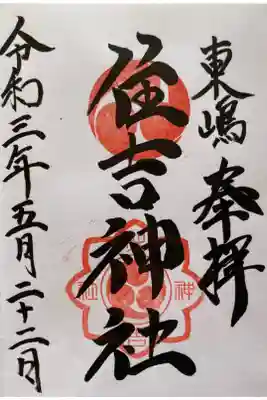 奉拝
東嶋
住吉神社
令和三年五月二十二日